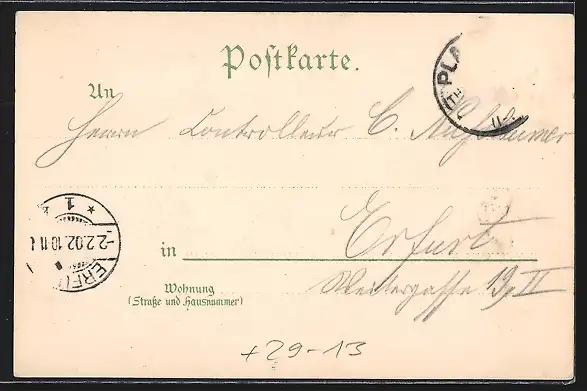 Postkarte.
PLA
An
Herrn Controlleur C.
* 1 *
2.2.02.10-11
ERFU
in Erfurt
Wohnung
(Straße und Hausnummer)
19, II
+29-13